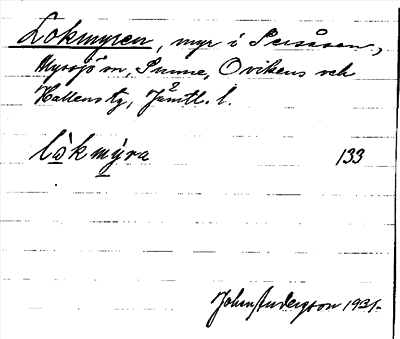 Lokmyren, myr i Persåsen,
Myssjö sn, Sunne, Ovikens och
Hallens tg, Jämtl. l.
lo̱km̱ýra 133
John Andersson 1931.